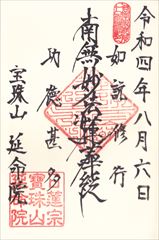 令和四年八月六日
如説修行
南無妙法蓮華経
功徳甚多
宝珠山 延命院
日蓮宗
寶珠山
延命院